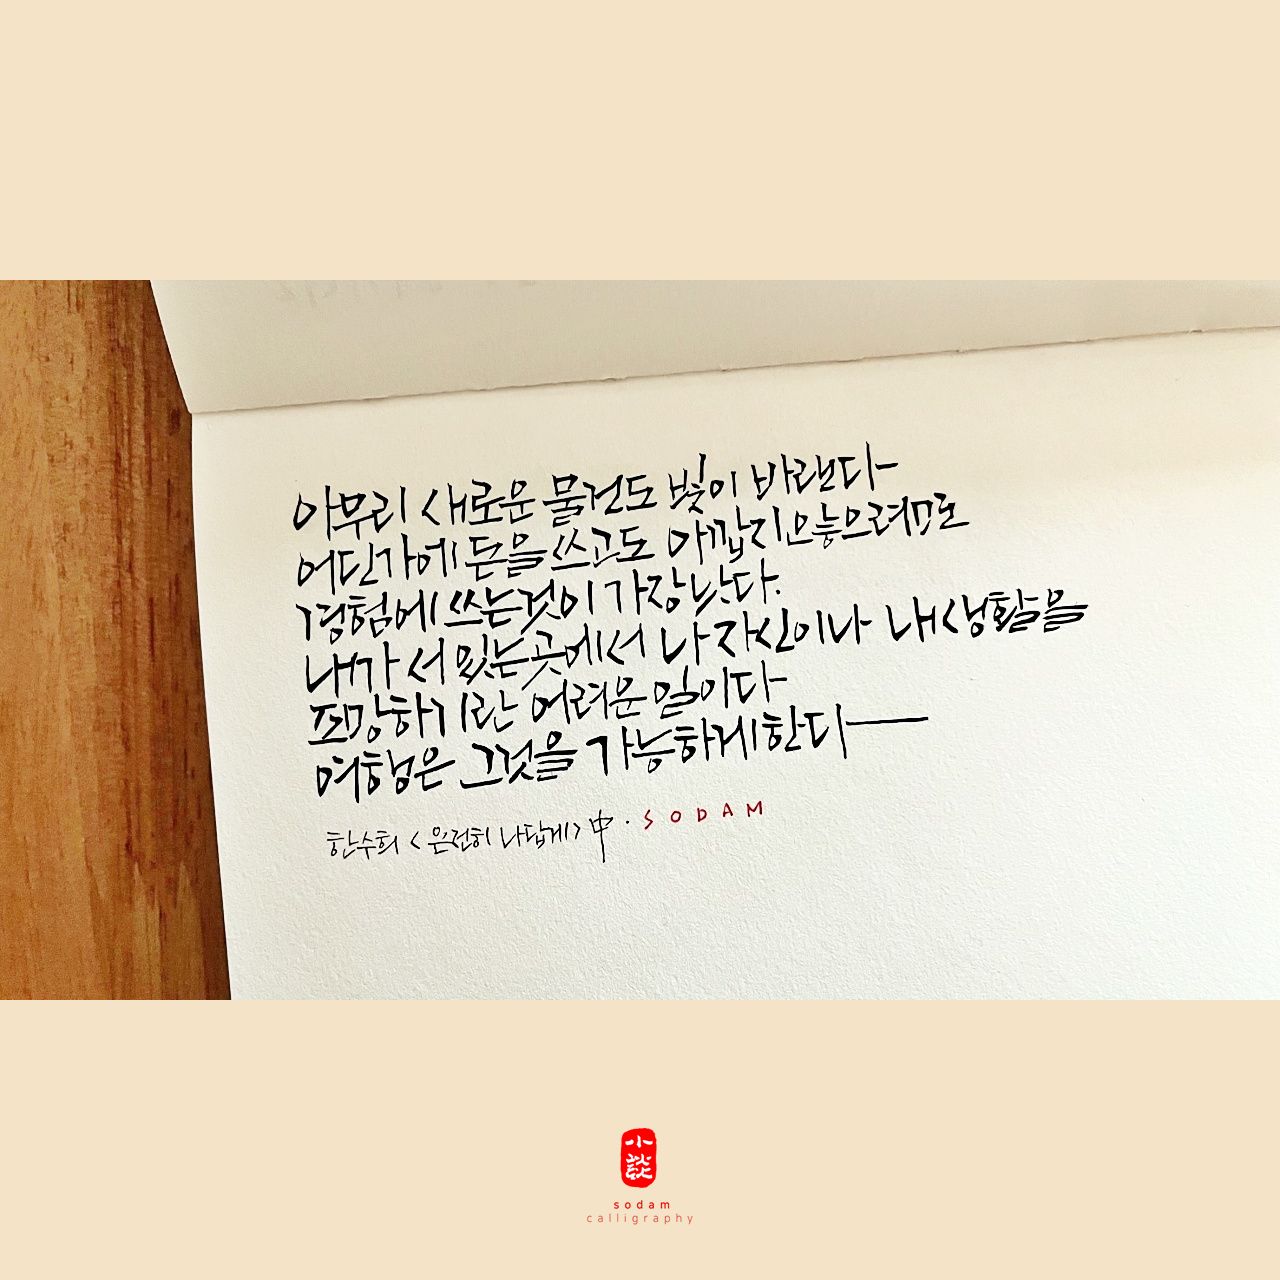 아무리 새로운 물건도 빛이 바랜다
어딘가에 돈을 쓰고도 아깝지 않으려면
경험에 쓰는 것이 가장 낫다.
내가 서 있는 곳에서 나 자신이나 내 생활을
조망하기란 어려운 일이다
여행은 그것을 가능하게 한다
한수희 <온전히 나답게> 中 · SODAM
小談
sodam
calligraphy